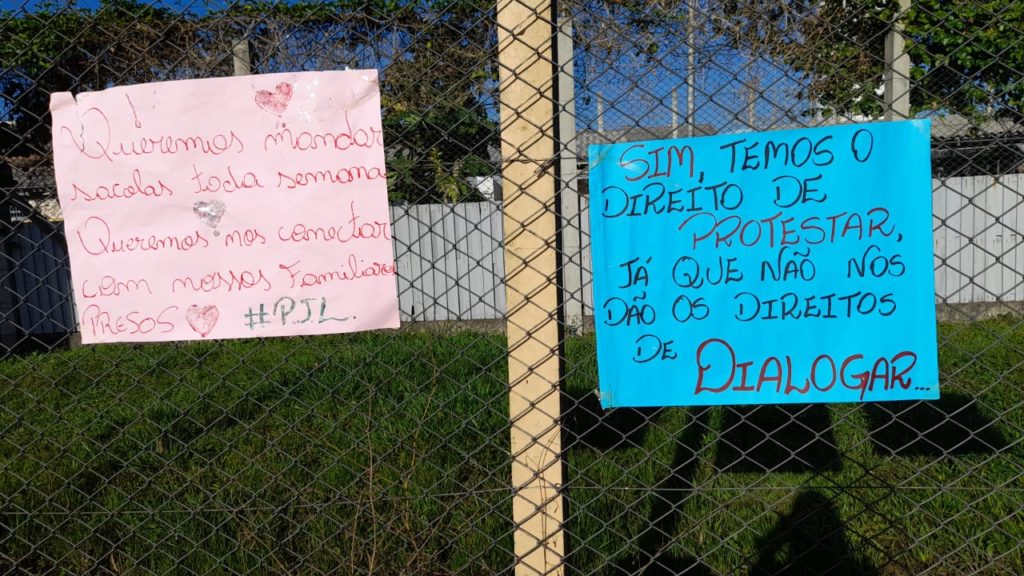 Queremos mandar
sacolas toda semana
Queremos nos conectar
com nossos Familiares
PRESOS #PJL.
SIM, TEMOS O
DIREITO DE
PROTESTAR,
JÁ QUE NÃO NOS
DÃO OS DIREITOS
DE DIALOGAR...